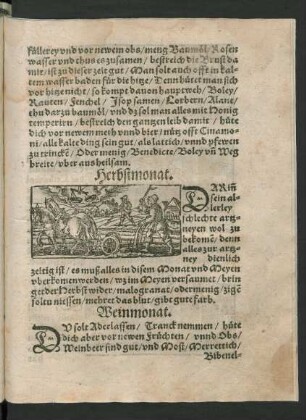 füllerey vnd vor newem obs/ meng Baumöl/ Rosen
wasser vnd thus es zusamen/ bestreich die Brust da
mit/ ist zu dieser zeit gut/ Man solt auch offt in kal-
tem wasser baden für die hitze/ Denn hütet man sich
vor hitze nicht/ so kompt davon hauptweh/ Boley/
Rauten/ Fenchel/ Isop samen/ Lorbern/ Alane/
thu darzu baumöl/ vnd dz sol man alles mit Honig
temperirn/ bestreich den gantzen leib damit/ hüte
dich vor newem meth vnnd bier/ nütz offt Cinamo-
ni/ alle kalte ding sein gut/ als latrich/ vnnd ysswen
zu trincke/ Oder menig/ Benedicte/ Boley vn Weg
breite/ vber aus heilsam.
Herbstmonat.
DARiñ
sein al-
lerley
schlechte artz-
neyen wol zu
bekomẽ/ denn
alles zur artz-
ney dienlich
zeitig ist/ es muß alles in disem Monat vnd Meyen
vberkomen werden/ wz im Meyen versaumet/ brin
get der Herbst wider/ malogranat/ odermenig/ zige
soltu nitssen/ mehret das blut/ gibt gute farb.
Weinmonat.
DV solt Aderlassen/ Tranck nemmen/ hüte
dich aber vor newen Früchten/ vnnd Obs/
Weinbeer sind gut/ vnd Most/ Merrettich/
Bibenel-